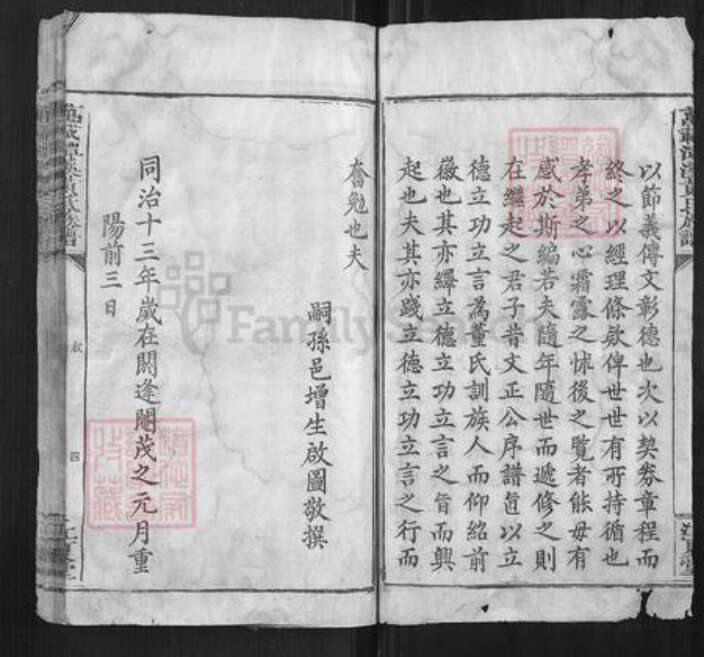 以節義傳文彰德也次以契券章程而
終之以經理條欵俾世世有所持循也
孝弟之心霜露之怵後之覽者能毋有
感於斯編若夫隨年隨世而遞修之則
在繼起之君子昔文正公序譜旨以立
德立功立言為董氏訓族人而仰紹前
徽也其亦繹立德立功立言之旨而興
起也夫其亦踐立德立功立言之行而
奮勉也夫
嗣孫邑增生啟圖敬撰
同治十三年歲在閼逢閹茂之元月重
陽前三日
四
FamilySearch